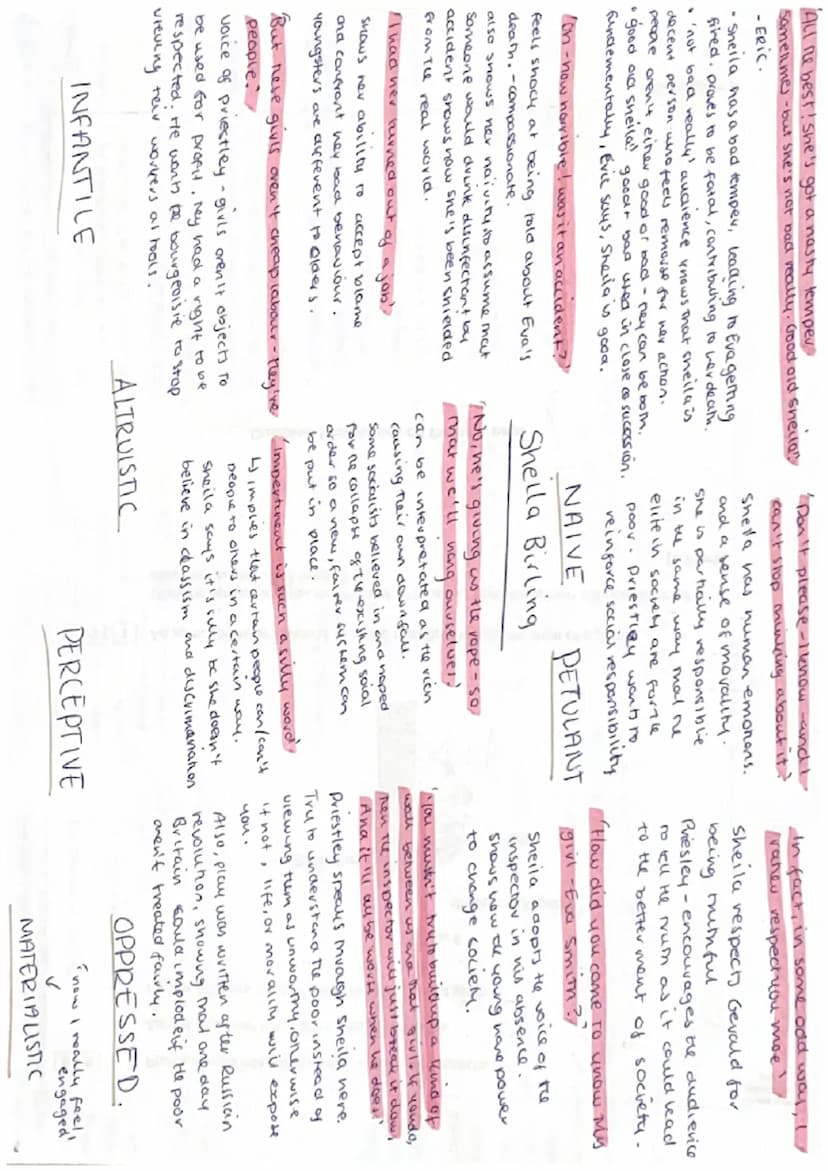 'All the best! She's got a nasty temper
sometimes - but she's not bad really. Good old Sheila!'
- Eric.
• Sheila has a bad temper, leading to Eva getting
fired. proves to be fatal, contributing to her death.
• 'not bad really' audience knows that sheila is
decent person who feels remorse for her action.
people aren't either good or bad - they can be both.
• 'good old sheila' good + bad used in close succession.
fundamentally, Eric says, Sheila is good.
'Oh - how horrible! was it an accident?'
feels shock at being told about Eva's
death. - compassionate.
also shows her naivity to assume that
someone would drink disinfectant by
accident shows how she's been shielded
from the real world.
'I had her turned out of a job'
shows her ability to accept blame
and confront her bad behaviour.
youngsters are different to olders.
'But these girls aren't cheap labour - they're
people.'
voice of priestley - girls aren't objects to
be used for profit, they had a right to be
respected. He wants the bourgeoisie to stop
viewing their workers as tools.
INFANTILE
ALTRUISTIC
'Don't please - I know - and I
can't stop thinking about it'
Sheila has human emotions.
and a sense of morality.
she is partially responsible
in the same way that the
elite in society are for the
poor. Priestley wants to
reinforce social responsibility
NAIVE
PETULANT
Sheila Birling
'No, he's giving us the rope - so
that we'll hang ourselves'
can be interpretated as the rich
causing their own downfall.
some socialists believed in and hoped
for the collapse of the existing social
order so a new, fairer system can
be put in place
'Impertinent is such a silly word'
↳ implies that certain people can/can't
people to others in a certain way.
Sheila says it's silly bc she doesn't
believe in classism and discrimination
PERCEPTIVE
'In fact, in some odd way, I
rather respect you more'
Sheila respects Gerald for
being truthful
Priesley - encourages the audience
to tell the truth as it could lead
to the betterment of society.
'How did you come to know this
girl - Eva Smith?'
Sheila adopts the voice of the
inspector in his absence.
shows how the young have power
to change society.
'You mustn't try to build up a kind of
wall between us and that girl. If you do,
then the inspector will just break it down,
And it'll all be worse when he does!'
Priestley speaks through Sheila here.
Try to understand the poor instead of
viewing them as unworthy, otherwise
if not, life, or morality, will expose
you.
Also, play was written after Russian
revolution, showing that one day
Britain could implode if the poor
aren't treated fairly.
OPPRESSED.
'now I really feel
engaged'
MATERIALISTIC